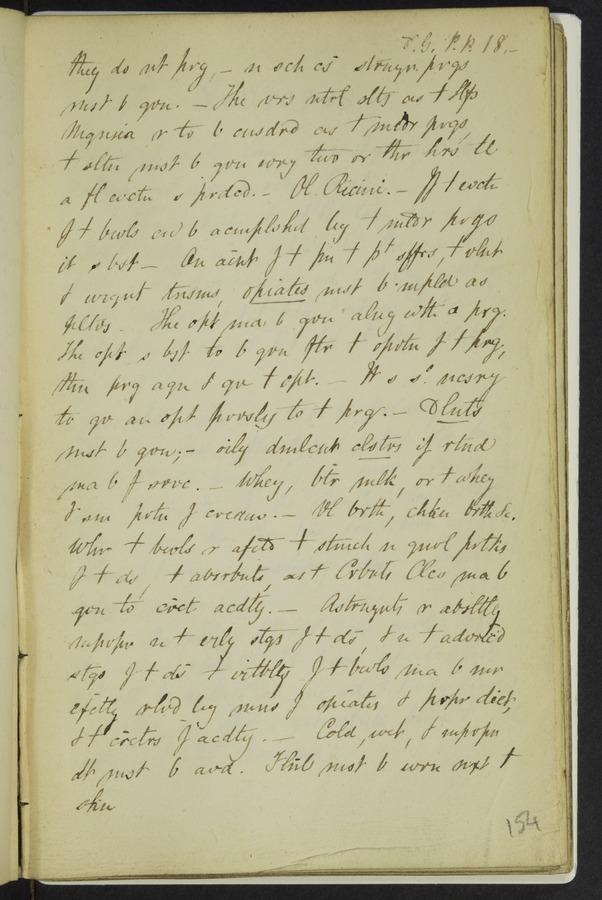 D.G. P.P. 18.–
they do nt prg, – n sch cs strngr. prgs
mst b gvn. – The vrs ntrl slts as + Slfs
Mgnsia r to b cnsdrd as + mldr prgs
+ sltn mst b gvn evry two or thr hrs tl
a fl evctn s prdcd. – Ol. Ricini. – If + evctn
f + bwls cn b acmplshd by + mldr prgs
it s bst – On acnt f + pn + pt sffrs, + vlnt
& urgnt tnsms, opiates mst b mpld as
The opt ma b gvn alng wth a prg.
The opt s bst to b gvn ftr + oprtn f + prg,
thn prg agn & gv + opt. – It s s. ncsry
to gv an opt prvsly to + prg. – Dlnts
mst b gvn; – oily dmlcnt clstrs if rtnd
ma b f srvc. – Whey, btr mlk, or + whey
& sm prtn f
Vl brth, chkn brth &c.
Whr + bwls r afctd + stmch n gnrl prtks
f + ds, + absrbnts, as + Crbnts Clcs ma b
gvn to crct acdty. – Astrngnts r absltly
mprpr n + erly stgs f + ds, & n + advncd
stgs f + ds + irtblty f + bwls ma b mr
efctly rlvd by mns f opiates & propr diet,
& + crctrs f acdty. – Cold, wet, & mpropr
dt mst b avd. Flnl mst b worn nxt +
skin
154